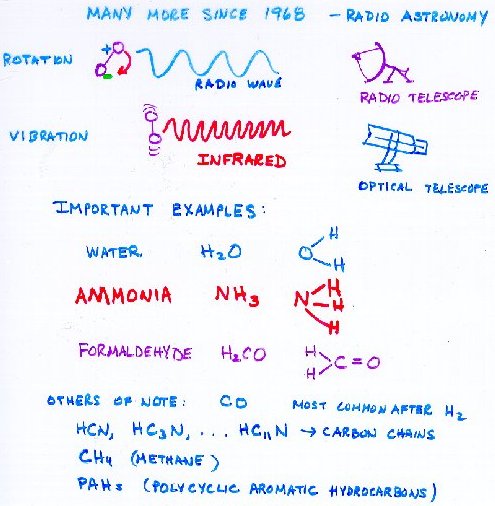 MANY MORE SINCE 1968 - RADIO ASTRONOMY
ROTATION
+
-
RADIO WAVE
RADIO TELESCOPE
VIBRATION
INFRARED
OPTICAL TELESCOPE
IMPORTANT EXAMPLES:
WATER H₂O O H H
AMMONIA NH₃ N H H H
FORMALDEHYDE H₂CO H H C=O
OTHERS OF NOTE: CO MOST COMMON AFTER H₂
HCN, HC₃N, ... HC₁₁N → CARBON CHAINS
CH₄ (METHANE)
PAHs (POLYCYCLIC AROMATIC HYDROCARBONS)